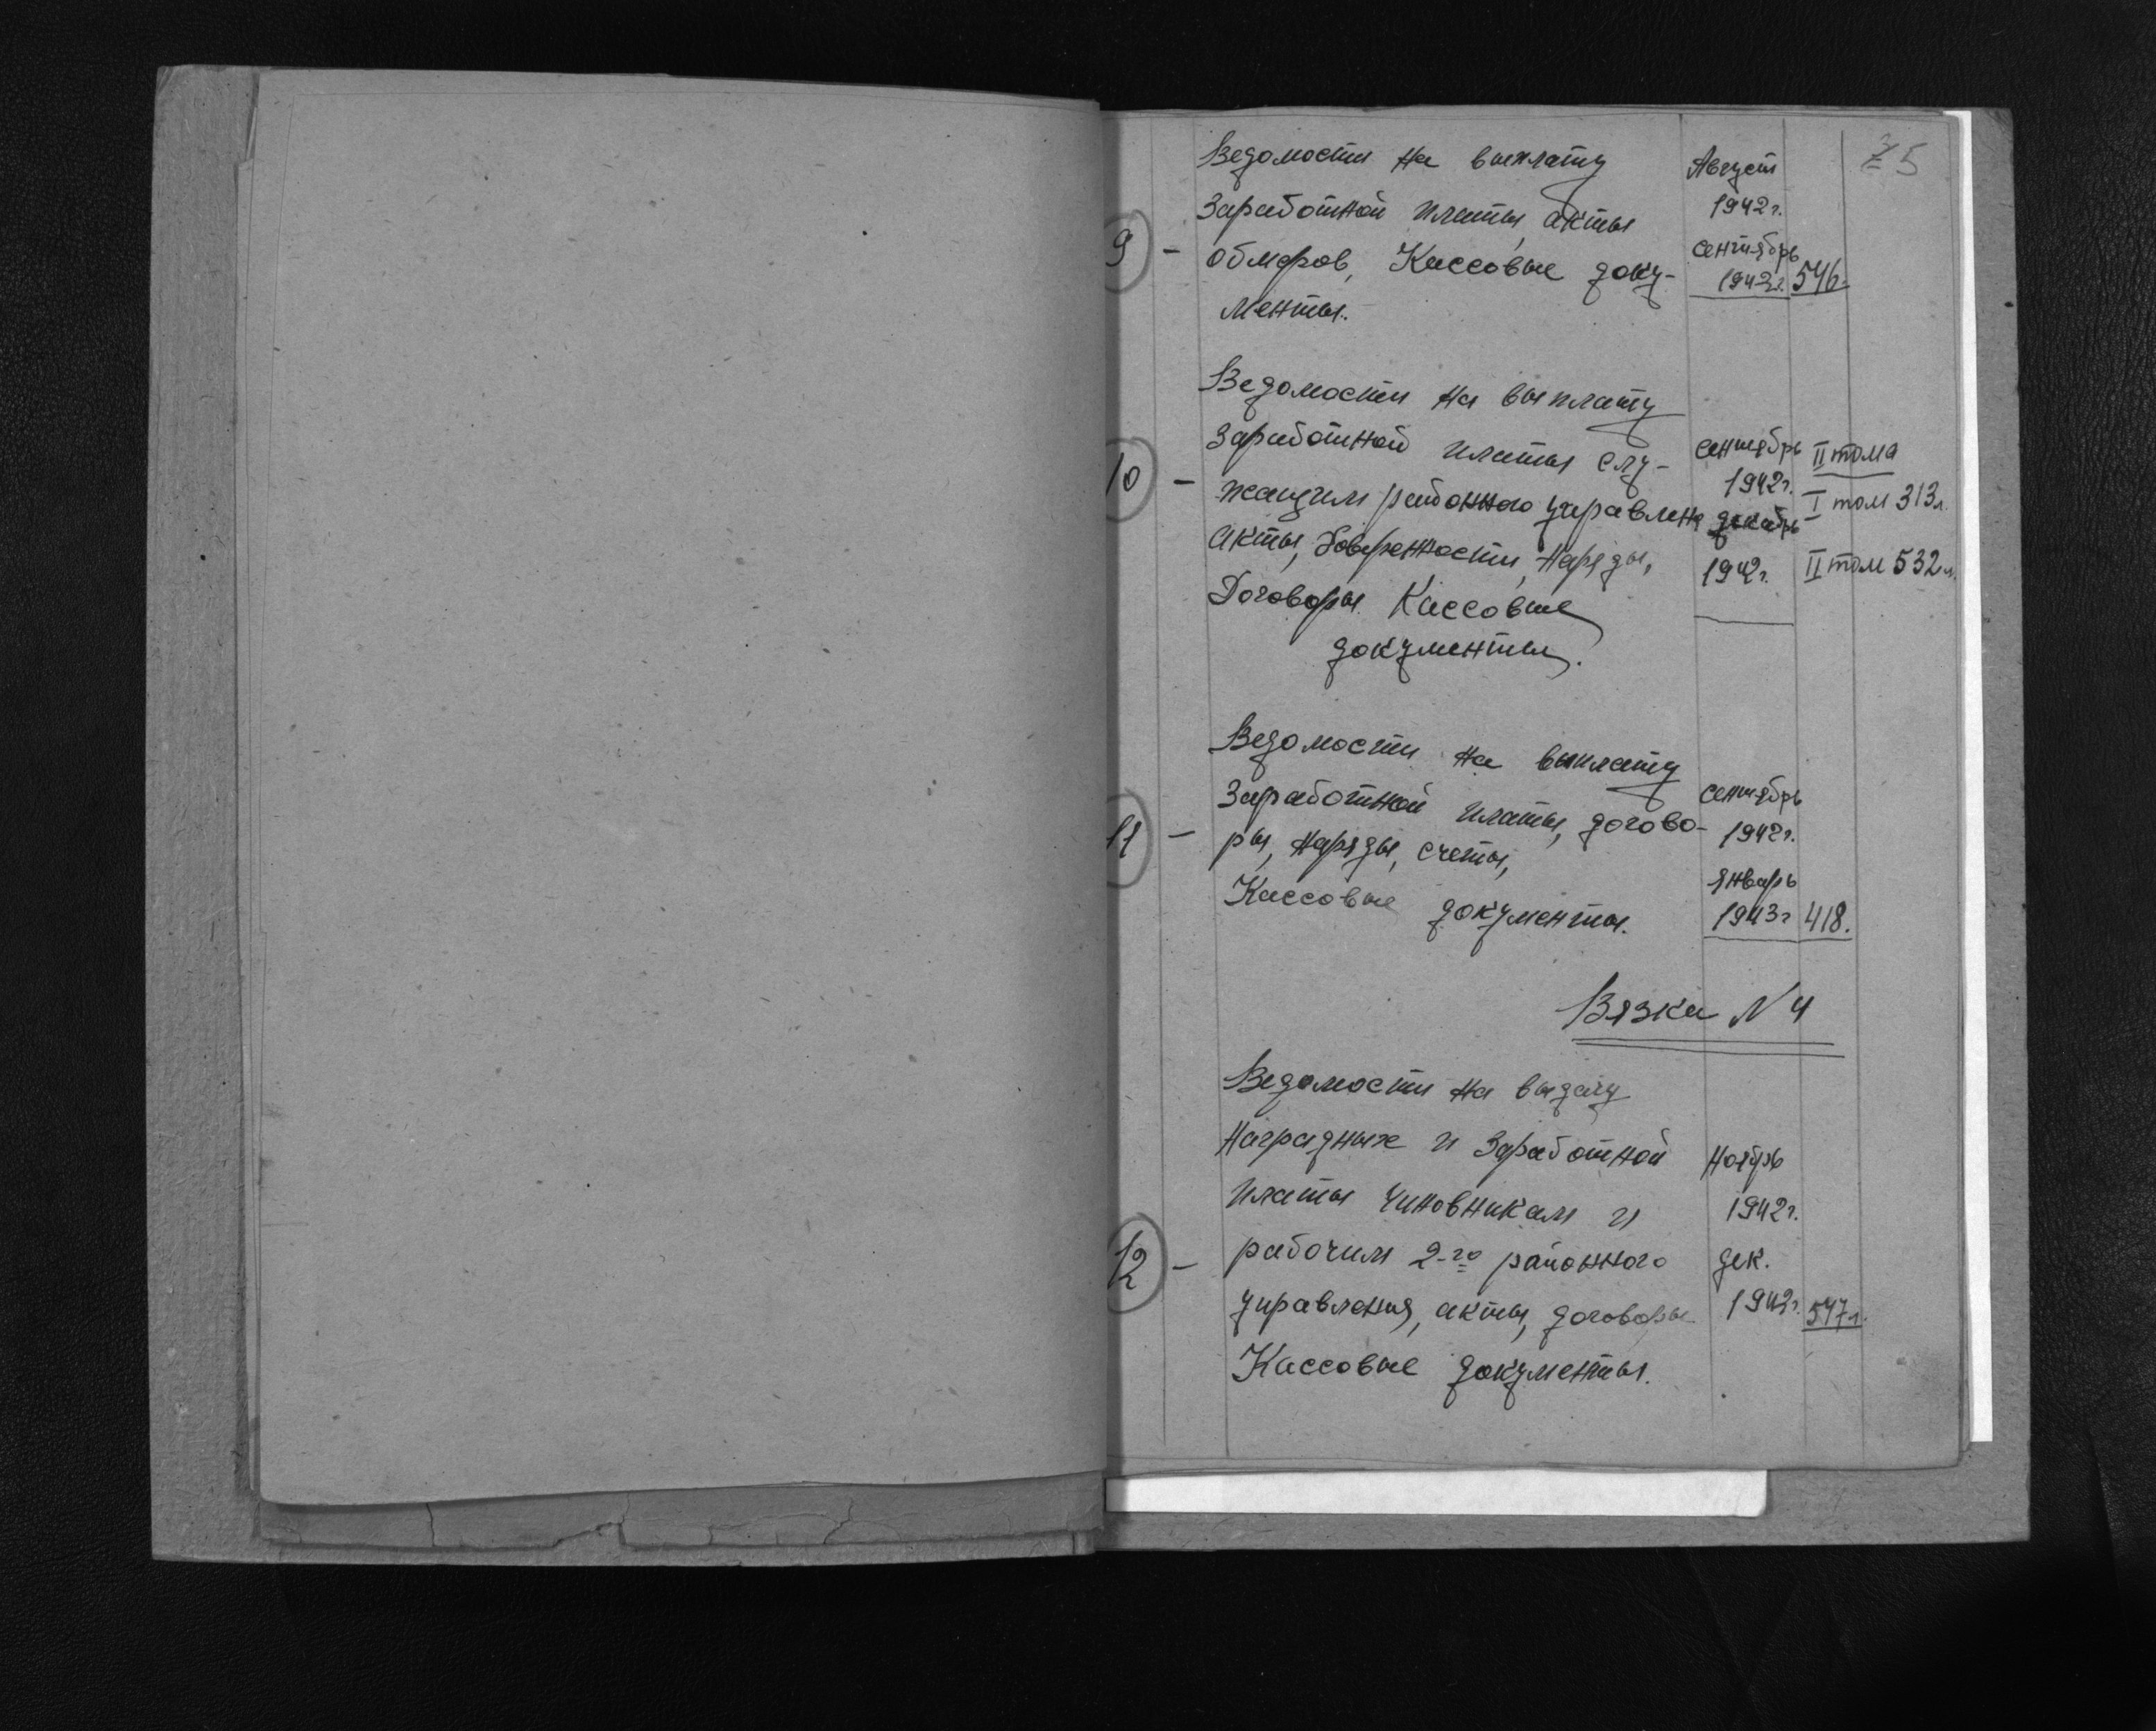 5
Ведомости на выплату
Август
заработной платы, акты
1942 г.
9 -
обмеров, Кассовые доку-
сентябрь
1942 г.
546.
менты.
Ведомости на выплату
10 -
заработной платы слу-
жащим районного управлен
акты, доверенности, наряды,
Договоры. Кассовые
документы.
сентябрь
1942 г.
декабрь
1942 г.
II тома
I том 313 л.
II том 532 л.
Ведомости на выплату
11 -
заработной платы, догово-
ры, наряды, счеты,
Кассовые документы.
сентябрь
1942 г.
январь
1943 г
418.
Вязка N 4
Ведомости на выдачу
наградных и заработной
платы чиновникам и
12 -
рабочим 2-го районного
управления, акты, договоры
Кассовые документы.
Ноябрь
1942 г.
дек.
1942 г.
547 л.